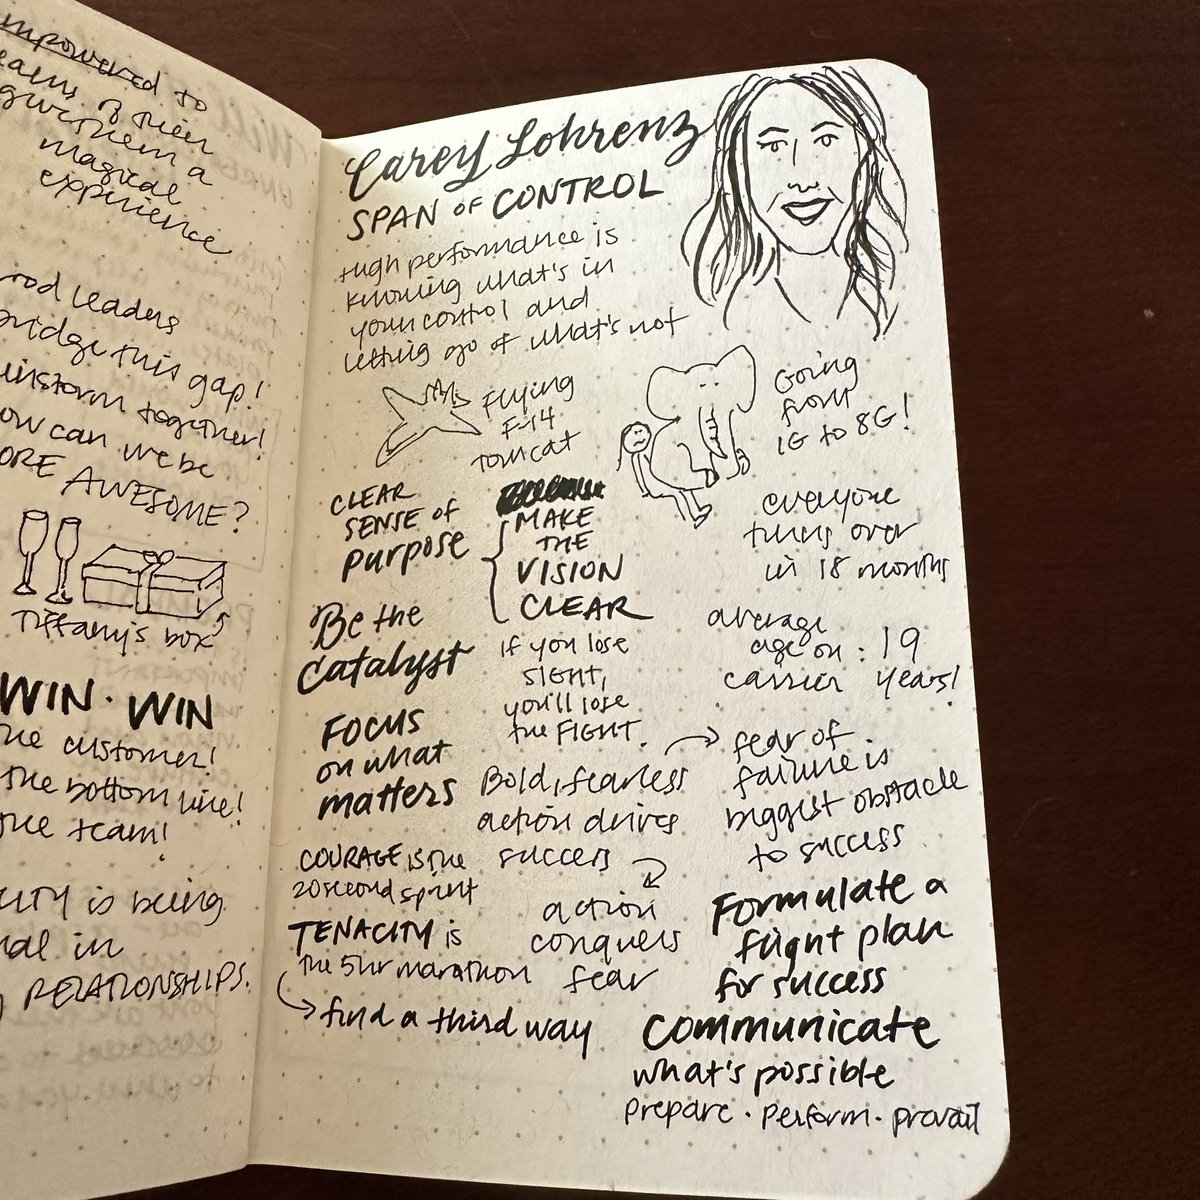 empowered to
teams of their
give them a
magical
experience
leaders
bridge this gap!
together!
how can we be
MORE AWESOME?
Tiffany's box
WIN · WIN
the customer!
the bottom line!
the team!
is being
in
RELATIONSHIPS.
Carey Lohrenz
SPAN OF CONTROL
High performance is
knowing what's in
your control and
letting go of what's not
Flying
F-14
Tomcat
Going
from
1G to 8G!
CLEAR
SENSE OF
purpose
MAKE
THE
VISION
CLEAR
if you lose
SIGHT,
you'll lose
the FIGHT.
everyone
turns over
in 18 months
average
age on : 19
carrier years!
Be the
catalyst
FOCUS
on what
matters
Bold, fearless
action drives
success
action
conquers
fear
fear of
failure is
biggest obstacle
to success
COURAGE is the
20 second sprint
TENACITY is
the 5hr marathon
find a third way
Formulate a
flight plan
for success
Communicate
what's possible
prepare · perform · prevail